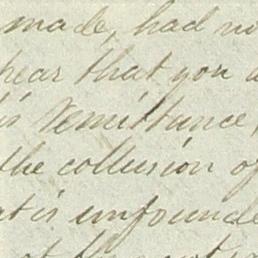 made, had no
hear that you a
is Remittance,
the collusion of
at is unfounde